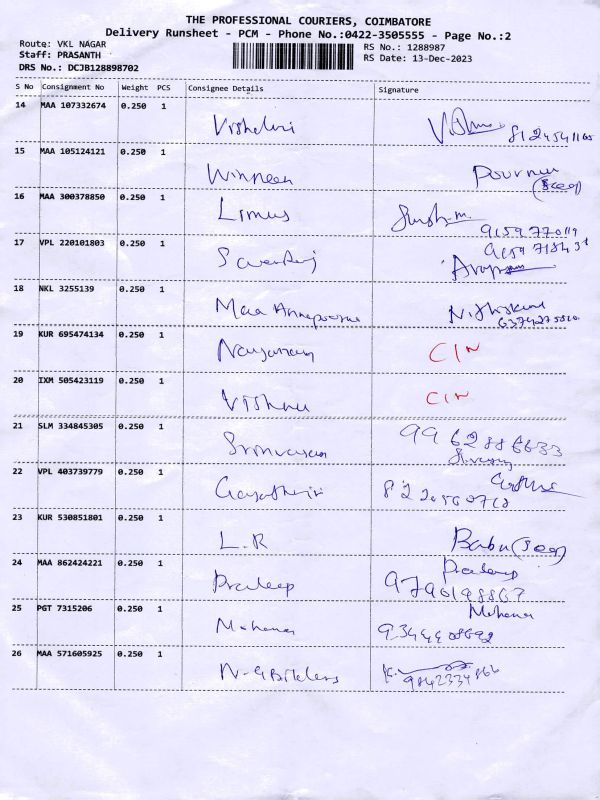 THE PROFESSIONAL COURIERS, COIMBATORE
Delivery Runsheet - PCM - Phone No.:0422-3505555 - Page No.:2
Route: VKL NAGAR
RS No.: 1288987
Staff: PRASANTH
RS Date: 13-Dec-2023
DRS No.: DCJB128898702
S No Consignment No Weight PCS Consignee Details Signature
14 MAA 107332674 0.250 1
Vishalini
15 MAA 105124121 0.250 1
Winneen
16 MAA 300378850 0.250 1
Limus
9159770119
17 VPL 220101803 0.250 1
9159718431
18 NKL 3255139 0.250 1
Maa Annapoorna
19 KUR 695474134 0.250 1
Narayanan CIN
20 IXM 505423119 0.250 1
Vishnu CIN
21 SLM 334845305 0.250 1
Srinivasan 9962886633
22 VPL 403739779 0.250 1
Gayathiri
23 KUR 530851801 0.250 1
L.R Babu (Seal)
24 MAA 862424221 0.250 1
Pradeep
Pradeep 9790198867
25 PGT 7315206 0.250 1
Mohana
Mohana 9344408692
26 MAA 571605925 0.250 1
9842334866